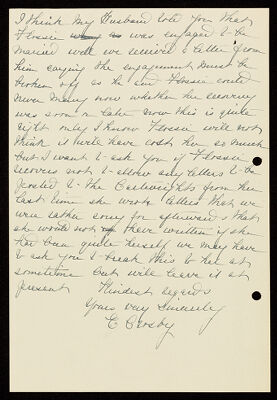 I think my Husband told you that
Flossie was engaged to be
married well we received a letter from
him saying the engagement must be
broken off as he and Flossie could
never marry now whether the recovery
was soon or later now this is quite
right only I know Flossie will not
think it will have cost her so much
but I want to ask you if Flossie
recovers not to allow any letters to be
posted to the from her
last time she wrote letters that we
were rather sorry for afterwards that
she would not have written if she
had been quite herself we may have
to ask you to break this to her at
sometime but will leave it at
present Kindest regards
Yours very Sincerely
E Crosby